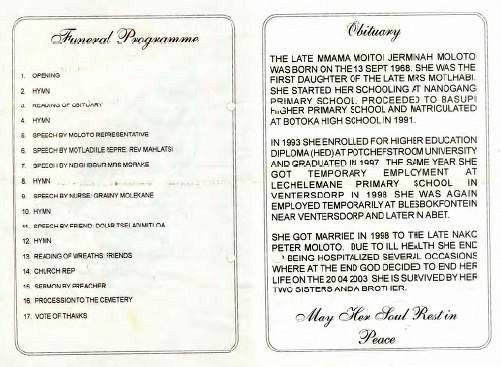 Funeral Programme
1. OPENING
2. HYMN
3. READING OF OBITUARY
4. HYMN
5. SPEECH BY MOLOTO REPRESENTATIVE
6. SPEECH BY MOTLADILE SEPRE: REV MAHLATSI
7. SPEECH BY NEIGHBOUR MRS
8. HYMN
9. SPEECH BY NURSE: GRAINY MOLEKANE
10. HYMN
11. SPEECH BY FRIEND:
12. HYMN
13. READING OF WREATHS: FRIENDS
14. CHURCH REP
15. SERMON BY PREACHER
16. PROCESSION TO THE CEMETERY
17. VOTE OF THANKS
Obituary
THE LATE MMAMA MOITOI JERMINAH MOLOTO
WAS BORN ON THE 13 SEPT 1968. SHE WAS THE
FIRST DAUGHTER OF THE LATE MRS MOTLHABI.
SHE STARTED HER SCHOOLING AT NANOGANG
PRIMARY SCHOOL. PROCEEDED TO BASUPI
HIGHER PRIMARY SCHOOL AND MATRICULATED
AT BOTOKA HIGH SCHOOL IN 1991.
IN 1993 SHE ENROLLED FOR HIGHER EDUCATION
DIPLOMA (HED) AT POTCHEFSTROOM UNIVERSITY
AND GRADUATED IN 1997. THE SAME YEAR SHE
GOT TEMPORARY EMPLOYMENT AT
LECHELEMANE PRIMARY SCHOOL IN
VENTERSDORP IN 1998 SHE WAS AGAIN
EMPLOYED TEMPORARILY AT BLESBOKFONTEIN
NEAR VENTERSDORP AND LATER IN ABET.
SHE GOT MARRIED IN 1998 TO THE LATE NAKO
PETER MOLOTO. DUE TO ILL HEALTH SHE END
UP BEING HOSPITALIZED SEVERAL OCCASIONS
WHERE AT THE END GOD DECIDED TO END HER
LIFE ON THE 20 04 2003 SHE IS SURVIVED BY HER
TWO SISTERS AND A BROTHER.
May Her Soul Rest in
Peace